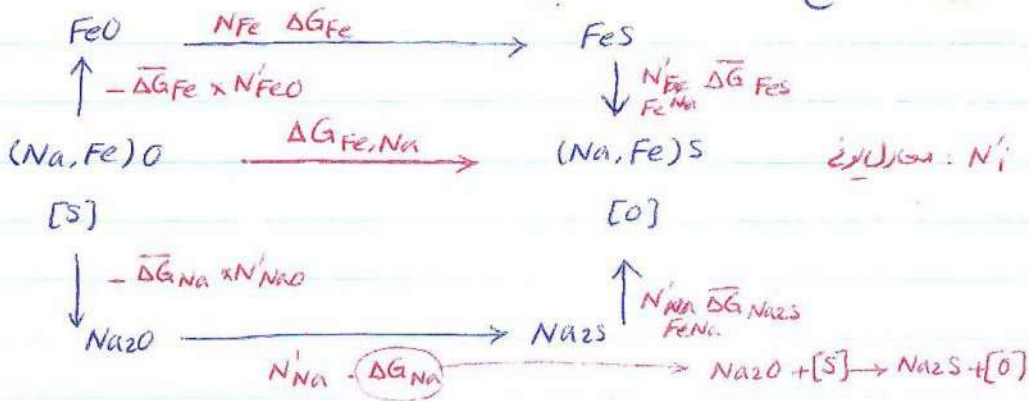 FeO N_Fe ΔG_Fe FeS
- ΔḠ_Fe × N'_FeO N'_Fe ΔḠ_FeS
Fe Na
(Na, Fe) O ΔG_Fe,Na (Na, Fe) S معادل یونی : N'i
[S] [O]
- ΔḠ_Na × N'_NaO N'_Na ΔḠ_Na2S
FeNa
Na2O Na2S
N'_Na · ΔG_Na Na2O + [S] → Na2S + [O]